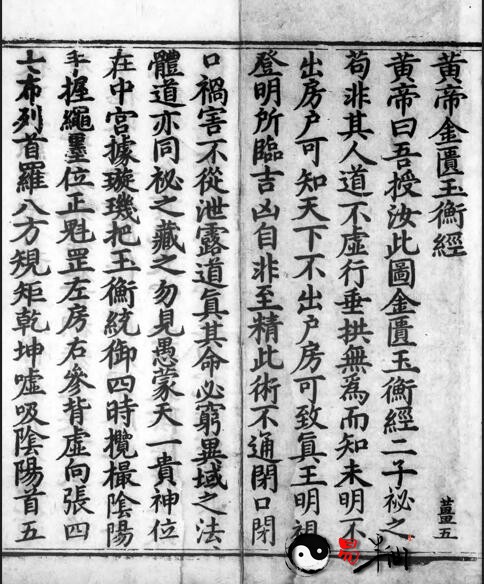 黄帝金匱玉衡經
薑五
黄帝曰吾授汝此圖金匱玉衡經二子祕之
苟非其人道不虛行垂拱無爲而知未明不
出房户可知天下不出户房可致眞王明視
登明所臨吉凶自非至精此術不通閉口閉
口禍害不從泄露道眞其命必窮異域之法
體道亦同祕之藏之勿見愚蒙天一貴神位
在中宮據璇璣把玉衡統御四時攬撮陰陽
手握繩墨位正魁罡左房右參背虛向張四
七布列首羅八方規矩乾坤噓吸陰陽首五